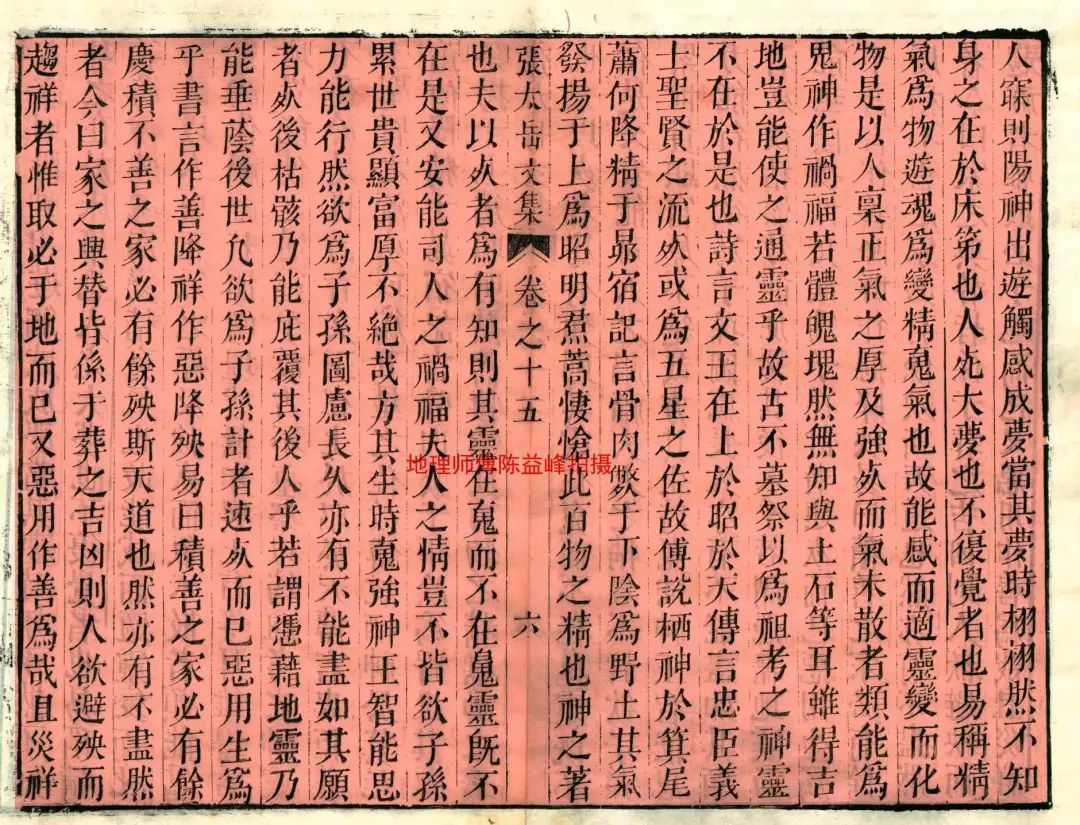 人寐則陽神出遊觸感成夢當其夢時栩栩然不知
身之在於床第也人死大夢也不復覺者也易稱精
氣爲物遊魂爲變精䰟氣也故能感而適靈變而化
物是以人稟正氣之厚及強死而氣未散者類能爲
鬼神作禍福若體魄塊然無知與土石等耳雖得吉
地豈能使之通靈乎故古不墓祭以爲祖考之神靈
不在於是也詩言文王在上於昭於天傳言忠臣義
士聖賢之流死或爲五星之佐故傅說栖神於箕尾
蕭何降精于昴宿記言骨肉斃于下陰爲野土其氣
發揚于上爲昭明焄蒿悽愴此百物之精也神之著
張太岳文集 卷之十五 六
也夫以死者爲有知則其靈在䰟而不在魄靈旣不
在是又安能司人之禍福夫人之情豈不皆欲子孫
累世貴顯富厚不絶哉方其生時䰟強神王智能思
力能行然欲爲子孫圖慮長久亦有不能盡如其願
者死後枯骸乃能庇覆其後人乎若謂憑藉地靈乃
能垂蔭後世凢欲爲子孫計者速死而已惡用生爲
乎書言作善降祥作惡降殃易曰積善之家必有餘
慶積不善之家必有餘殃斯天道也然亦有不盡然
者今曰家之興替皆係于葬之吉凶則人欲避殃而
趨祥者惟取必于地而已又惡用作善爲哉且災祥
地理师傅陈益峰拍摄